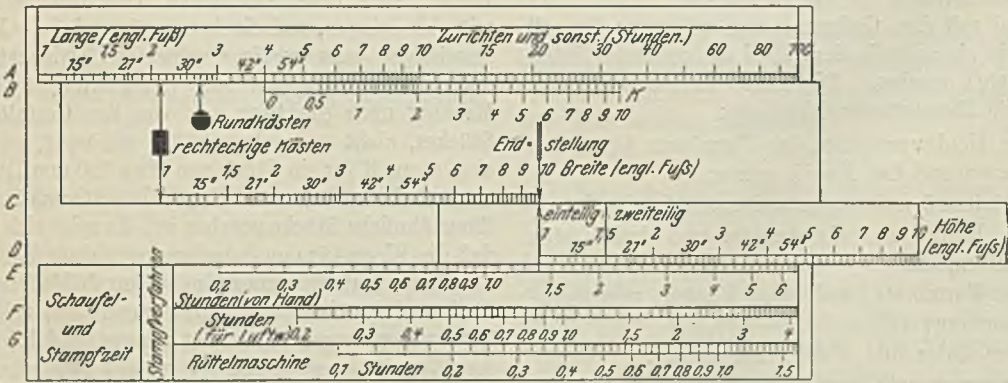 Länge (engl. Fuß) Zurichten und sonst. (Stunden.)
1 1,5 2 3 4 5 6 7 8 9 10 15 20 30 40 60 80 100
15" 27" 30" 42" 54"
A
B
K
0 0,5 1 2 3 4 5 6 7 8 9 10
Rundkästen
rechteckige Kästen
End- stellung
1 1,5 2 3 4 5 6 7 8 9 10 Breite (engl. Fuß)
15" 27" 30" 42" 54"
C
einteilig zweiteilig
1 1,5 2 3 4 5 6 7 8 9 10
15" 27" 30" 42" 54"
Höhe (engl. Fuß)
D
E
0,2 0,3 0,4 0,5 0,6 0,7 0,8 0,9 1,0 1,5 2 3 4 5 6
Schaufel- und Stampfzeit
Stampfverfahren
Stunden (von Hand)
F
Stunden (für Luftw.) 0,2 0,3 0,4 0,5 0,6 0,7 0,8 0,9 1,0 1,5 2 3 4
G
Rüttelmaschine 0,1 Stunden 0,2 0,3 0,4 0,5 0,6 0,7 0,8 0,9 1,0 1,5